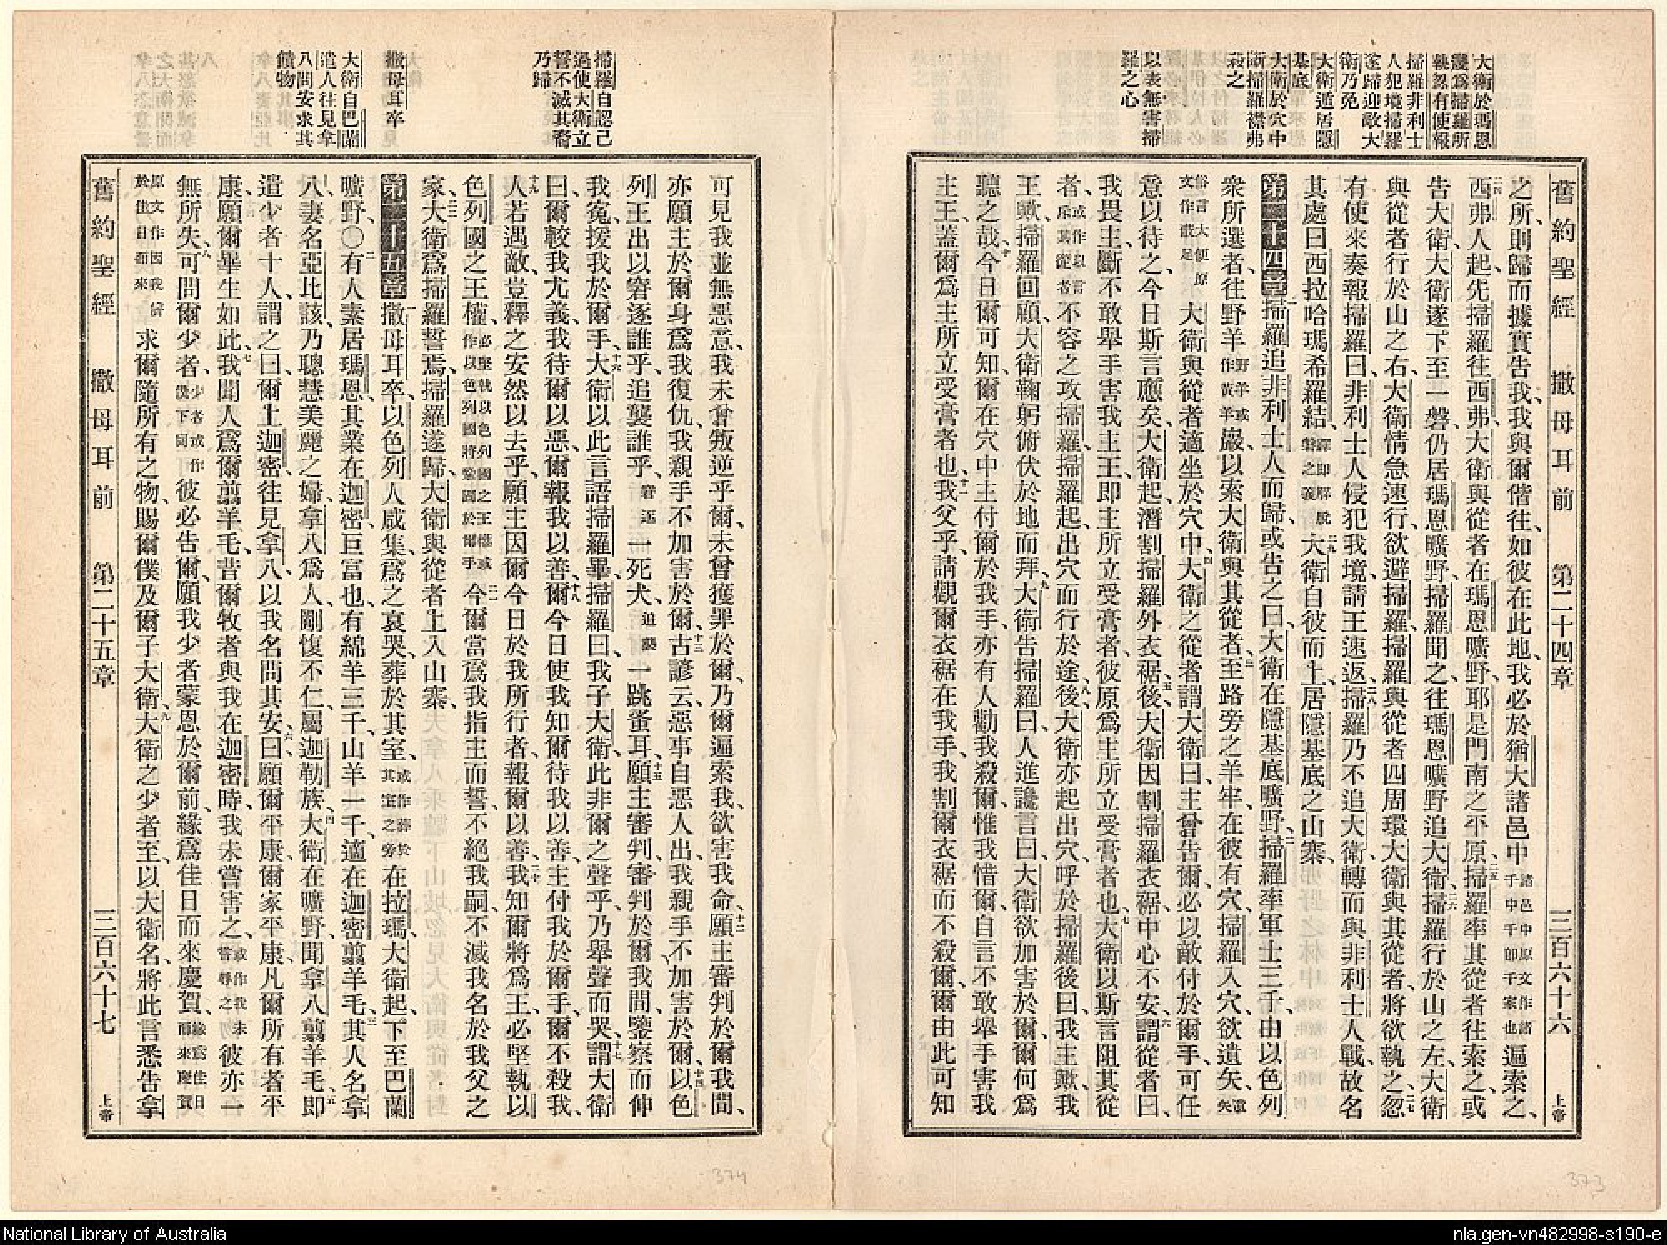 大衛於瑪恩
幾爲掃羅所
執忽有使報
掃羅非利士
人犯境掃羅
遂歸迎敵大
衛乃免
大衛遁居隱
基底
大衛於穴中
斷掃羅襟弗
殺之
以表無害掃
羅之心
舊約聖經 撒母耳前 第二十四章 三百六十六 上帝
之所、則歸而據實告我、我與爾偕往、如彼在此地、我必於猶大諸邑中 諸邑中原文作諸千中千卽千家也 遍索之、
二四西弗人起、先掃羅往西弗、大衛與從者在瑪恩曠野、耶是門南之平原、二五掃羅率其從者往索之、或
告大衛、大衛遂下至一磐、仍居瑪恩曠野、掃羅聞之、往瑪恩曠野追大衛、二六掃羅行於山之左、大衛
與從者行於山之右、大衛情急速行、欲避掃羅、掃羅與從者四周環大衛與其從者、將欲執之、二七忽
有使來奏報掃羅曰、非利士人侵犯我境、請王速返、二八掃羅乃不追大衛、轉而與非利士人戰、故名
其處曰西拉哈瑪希羅結、譯卽解脫磐之義 二九大衛自彼而上、居隱基底之山寨、
第二十四章 一掃羅追非利士人而歸、或告之曰、大衛在隱基底曠野、二掃羅率軍士三千、由以色列
衆所選者、往野羊 野羊或作黃羊 巖、以索大衛與其從者、三至路旁之羊牢、在彼有穴、掃羅入穴欲遺矢、
俗言大便原文作蔽足 大衛與從者適坐於穴中、四大衛之從者謂大衛曰、主曾告爾、必以敵付於爾手、可任
意以待之、今日斯言應矣、大衛起、潛割掃羅外衣裾、五後大衛因割掃羅衣裾、中心不安、六謂從者曰、
我畏主、斷不敢舉手害我主王、卽主所立受膏者、彼原爲主所立受膏者也、七大衛以斯言阻其從
者、不容之攻掃羅、掃羅起、出穴而行於途、八後大衛亦起出穴、呼於掃羅後曰、我主歟、我
王歟、掃羅回顧、大衛鞠躬俯伏於地而拜、九大衛告掃羅曰、人進讒言曰、大衛欲加害於爾、爾何爲
聽之哉、十今日爾可知、爾在穴中、主付爾於我手、亦有人勸我殺爾、惟我惜爾、自言不敢舉手害我
主王、蓋爾爲主所立受膏者也、十一我父乎、請觀爾衣裾在我手、我割爾衣裾而不殺爾、爾由此可知
掃羅自認己
過使大衛立
誓不滅其裔
乃歸
撒母耳卒
大衛自巴蘭
遣人往見拿
八問安求其
饋物
可見我並無惡意、我未曾叛逆乎爾、未曾獲罪於爾、乃爾遍索我、欲害我命、十二願主審判於爾我間、
亦願主於爾身爲我復仇、我親手不加害於爾、十三古諺云、惡事自惡人出、我親手不加害於爾、十四以色
列王出以窘逐誰乎、追襲誰乎、窘逐一死犬、追襲一跳蚤耳、十五願主審判、審判於爾我間、鑒察而伸
我寃、援我於爾手、十六大衛以此言語掃羅畢、掃羅曰、我子大衛、此非爾之聲乎、乃舉聲而哭、十七謂大衛
曰、爾較我尤義、我待爾以惡、爾報我以善、十八今日使我知爾待我以善、主付我於爾手、爾不殺我、
十九人若遇敵、豈釋之安然以去乎、願主因爾今日於我所行者、報爾以善、二十我知爾將爲王、必堅執以
色列國之王權、必堅執以色列國之王權或作以色列國將鞏固於爾手 二一今爾當爲我指主而誓、不絕我嗣、不滅我名於我父之
家、二二大衛爲掃羅誓焉、掃羅遂歸、大衛與從者上入山寨、
第二十五章 一撒母耳卒、以色列人咸集、爲之哀哭、葬於其室、或作葬於其室之旁 在拉瑪、大衛起、下至巴蘭
曠野、〇二有人素居瑪恩、其業在迦密、巨富也、有綿羊三千、山羊一千、適在迦密翦羊毛、三其人名拿
八、妻名亞比該、乃聰慧美麗之婦、拿八爲人剛愎不仁、屬迦勒族、四大衛在曠野、聞拿八翦羊毛、五卽
遣少者十人、謂之曰、爾上迦密、往見拿八、以我名問其安、六曰、願爾平康、爾家平康、凡爾所有者平
康、願爾畢生如此、七我聞人爲爾翦羊毛、昔爾牧者與我在迦密時、我未嘗害之、彼亦一
無所失、八可問爾少者、少者或作僕下同 彼必告爾、願我少者蒙恩於爾前、緣爲佳日而來慶賀、
原文作因我儕於佳日而來 求爾隨所有之物、賜爾僕及爾子大衛、九大衛之少者至、以大衛名、將此言悉告拿
舊約聖經 撒母耳前 第二十五章 三百六十七 上帝
374
373
National Library of Australia
nla.gen-vn482998-s190-e